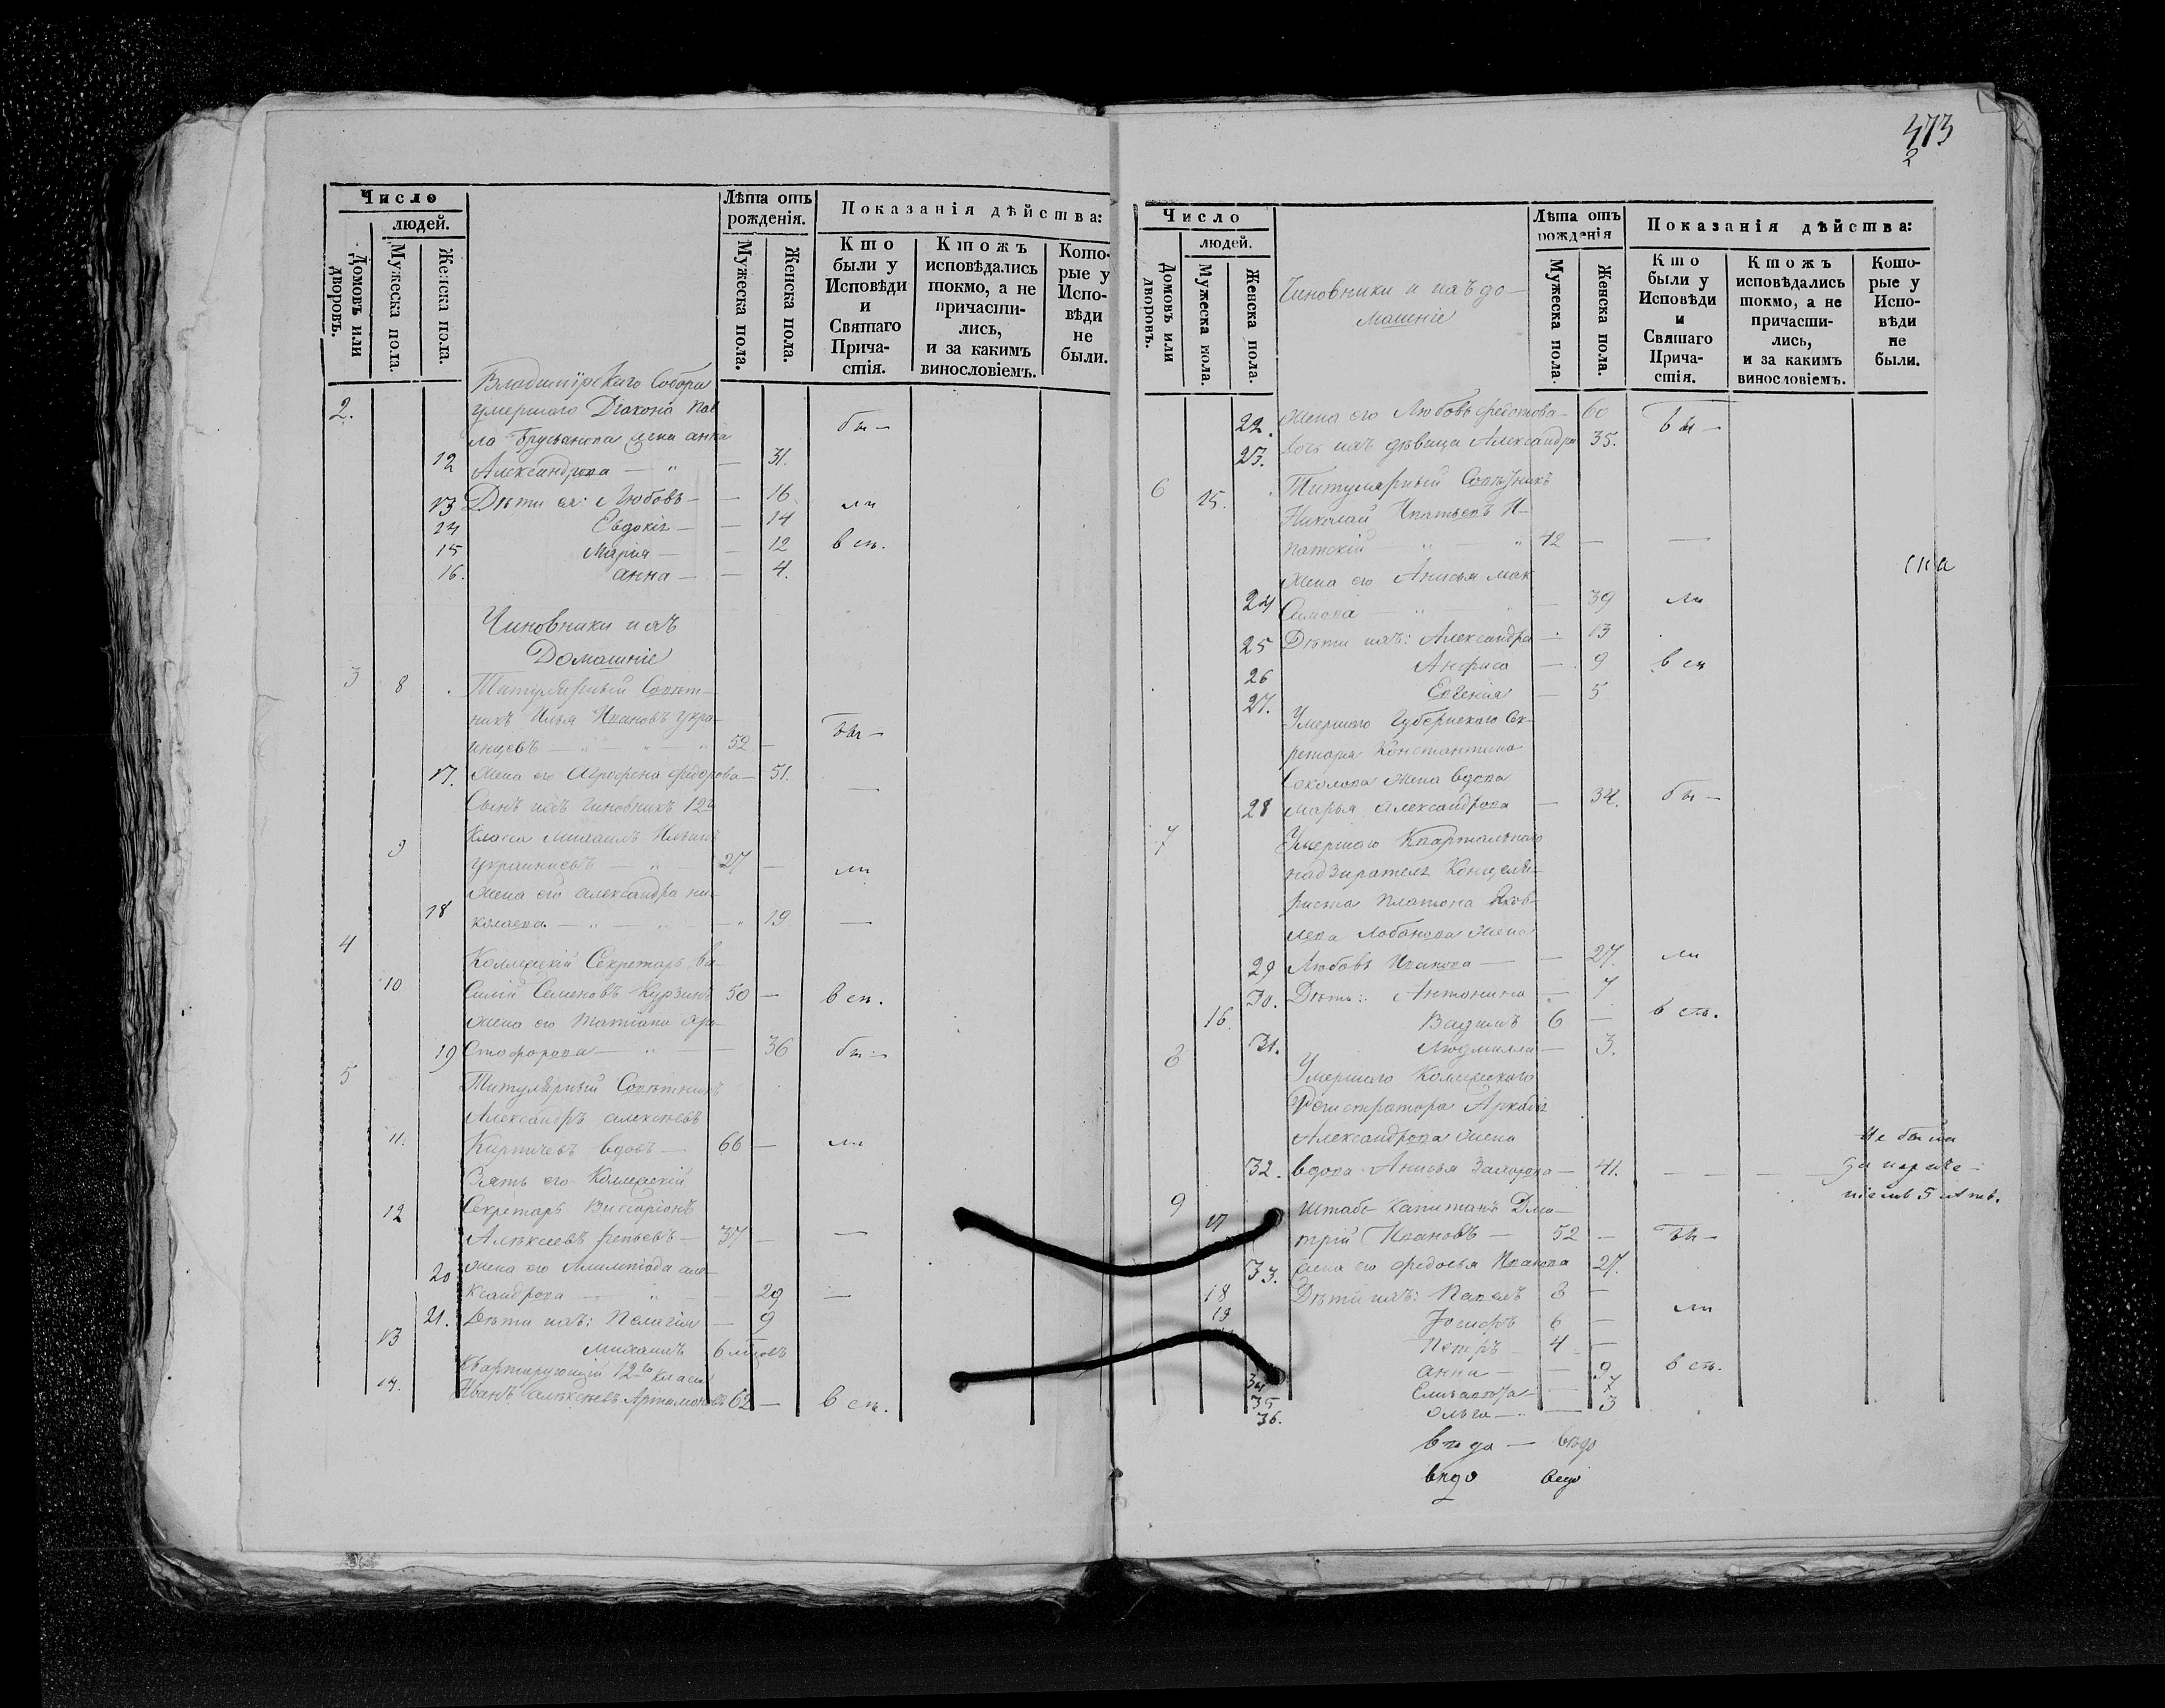 Число
людей.
Домовъ или дворовъ.
Мужеска пола.
Женска пола.
Лѣта отъ рожденія.
Мужеска пола.
Женска пола.
Показанія дѣйства:
Кто были у Исповѣди и Святаго Причастія.
Ктожъ исповѣдались токмо, а не причастились, и за какимъ винословіемъ.
Которые у Исповѣди не были.
Владимірскаго Собора
2. умершаго Діакона Пав
ла жена анна бы —
12 Александрова — " — — 31.
13 Дѣти ея: Любовь — — 16 ли
14 Евдокія — — 14
15 Марія — — 12 всѣ.
16. анна — — 4.
Чиновники и ихъ
Домашніе
3 8 Титулярный Совѣт—
никъ Илья Ивановъ Укра— бы —
инцевъ — " — " — " 52 —
17. Жена его Агрофена Федорова — 51. —
Сынъ ихъ Чиновникъ 12го
9 класса Михаилъ Ильинъ
Украинцевъ — " — 27 — ли
Жена его александра ни—
18 колаева — " — " — " 19 —
4 Коллежскій Секретарь Ва—
10 силій Семеновъ Курзинъ 50 — всѣ.
Жена его Татіана
19 — " — — 36 бы —
5 Титулярный Совѣтникъ
Александръ алексѣевъ
11. Кирпичевъ вдовъ — 66 — ли
Зять его Коллежскій
12 Секретарь Виссаріонъ
Алексѣевъ — 37 — —
20 Жена его Алимпіада але—
ксандрова — " — — 29 —
21. Дѣти ихъ: Пелагія — — 9
13 михаилъ 6 мѣсяцовъ
Квартирующій 12го класса
14. Иванъ алексѣевъ Артамоновъ 62 — всѣ.
473
2
Число
людей.
Домовъ или дворовъ.
Мужеска пола.
Женска пола.
Чиновники и ихъ до—
машніе
Лѣта отъ рожденія
Мужеска пола.
Женска пола.
Показанія дѣйства:
Кто были у Исповѣди и Святаго Причастія.
Ктожъ исповѣдались токмо, а не причастились, и за какимъ винословіемъ.
Которые у Исповѣди не были.
22. Жена его Любовь Федотова — 60 бы —
23. дочь ихъ дѣвица Александра 35.
6 15. Титулярный Совѣтникъ
Николай Ипатьевъ И—
патскій — " — " 42 — —
Жена его Анисья Мак
24 симова — " — " — 39 ли
25 Дѣти ихъ: Александра — 13
26 Анфиса — 9 всѣ
27. Евгенія — 5
Умершаго Губернскаго Сек—
ретаря Константина
Соколова жена вдова
28 Марья александрова — 34. бы —
7 Умершаго Квартальнаго
надзирателя Канцеля—
риста Платона Яков—
лева Лобанова жена
29 Любовь Иванова — — 27. ли
30. Дѣти: Антонина — 7
16. Вадимъ 6 — всѣ.
31. Людмилла — 3.
8 Умершаго Коллежскаго
Регистратора Аркадія
Александрова жена Не была
32. вдова Анисья — 41. — —
9 17 Штабс Капитанъ Дми—
трій Ивановъ — 52 — бы —
33. жена его Федосья Иванова 27.
18 Дѣти ихъ: Павелъ 8 — ли
19 Іосифъ 6 —
Петръ 4 —
34 анна — — 9 всѣ.
35 Елизавета — — 7
36. Ольга — — 3